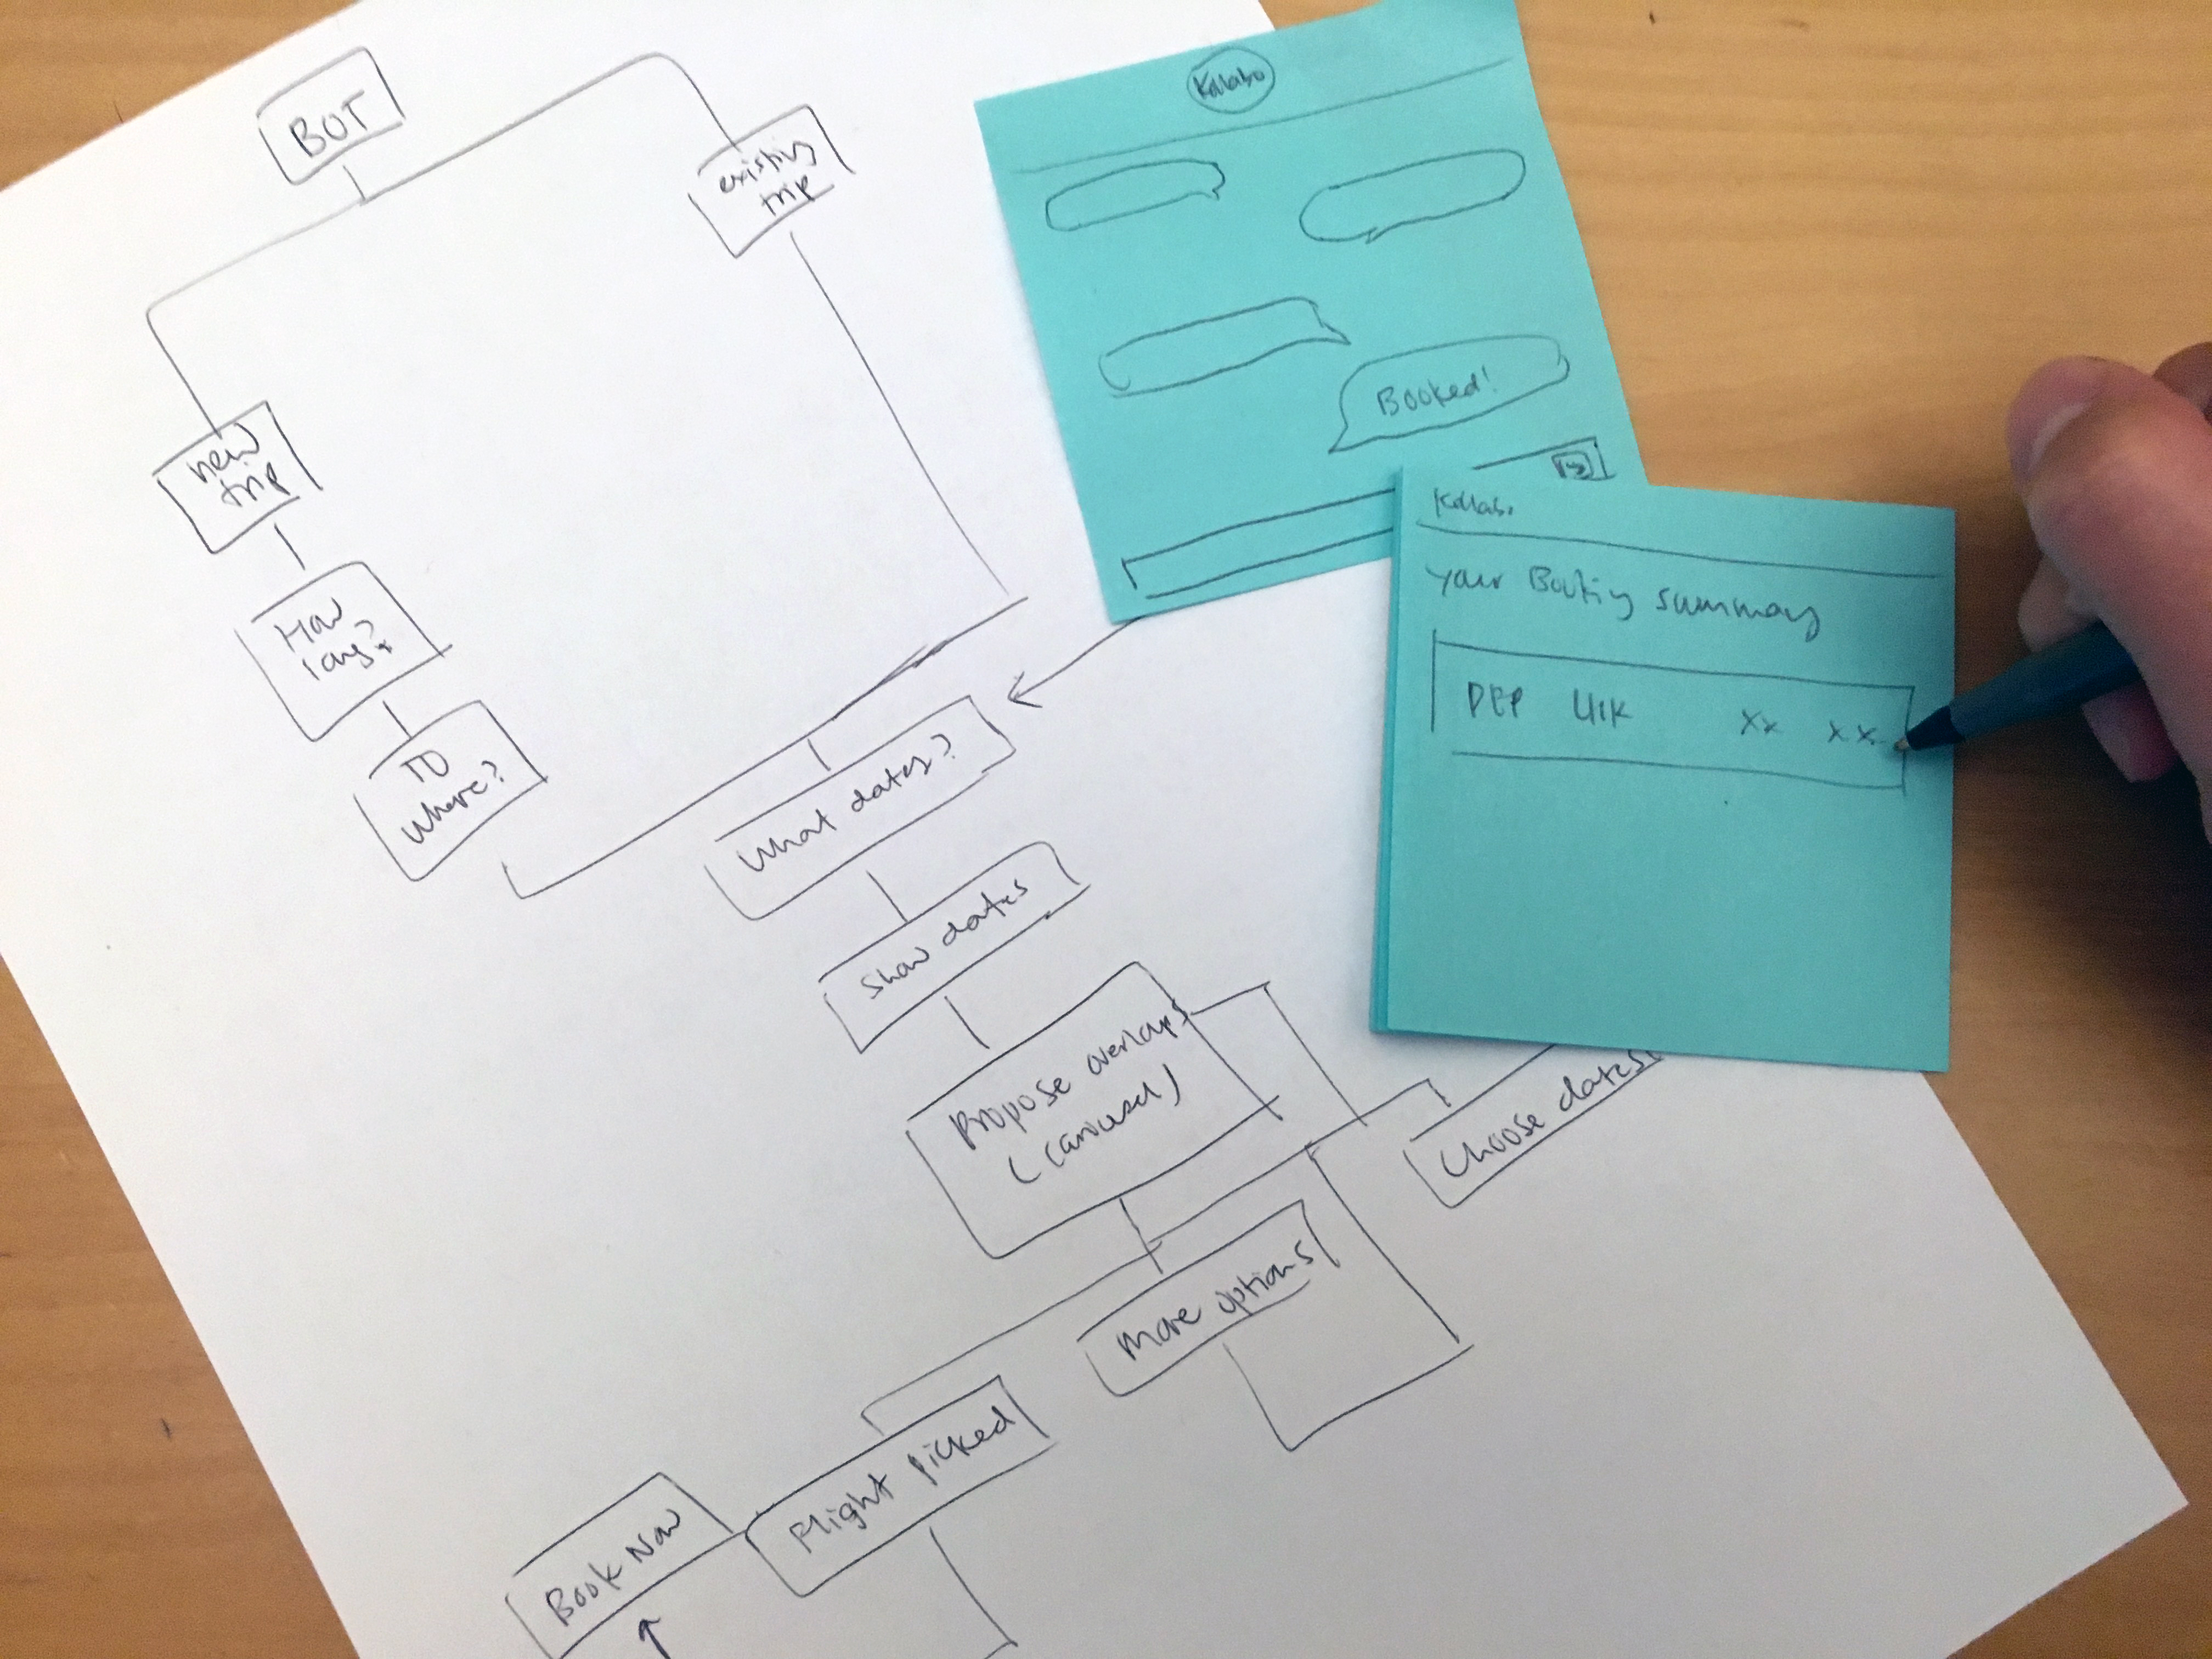 BOT
existing
trip
new
trip
How
long?
TO
where?
What dates?
Show dates
Propose overlaps
(carousel)
Choose dates
More options
Flight picked
Book Now
Kollabo
Booked!
Kollabo
Your Booking summary
DEP XX XX